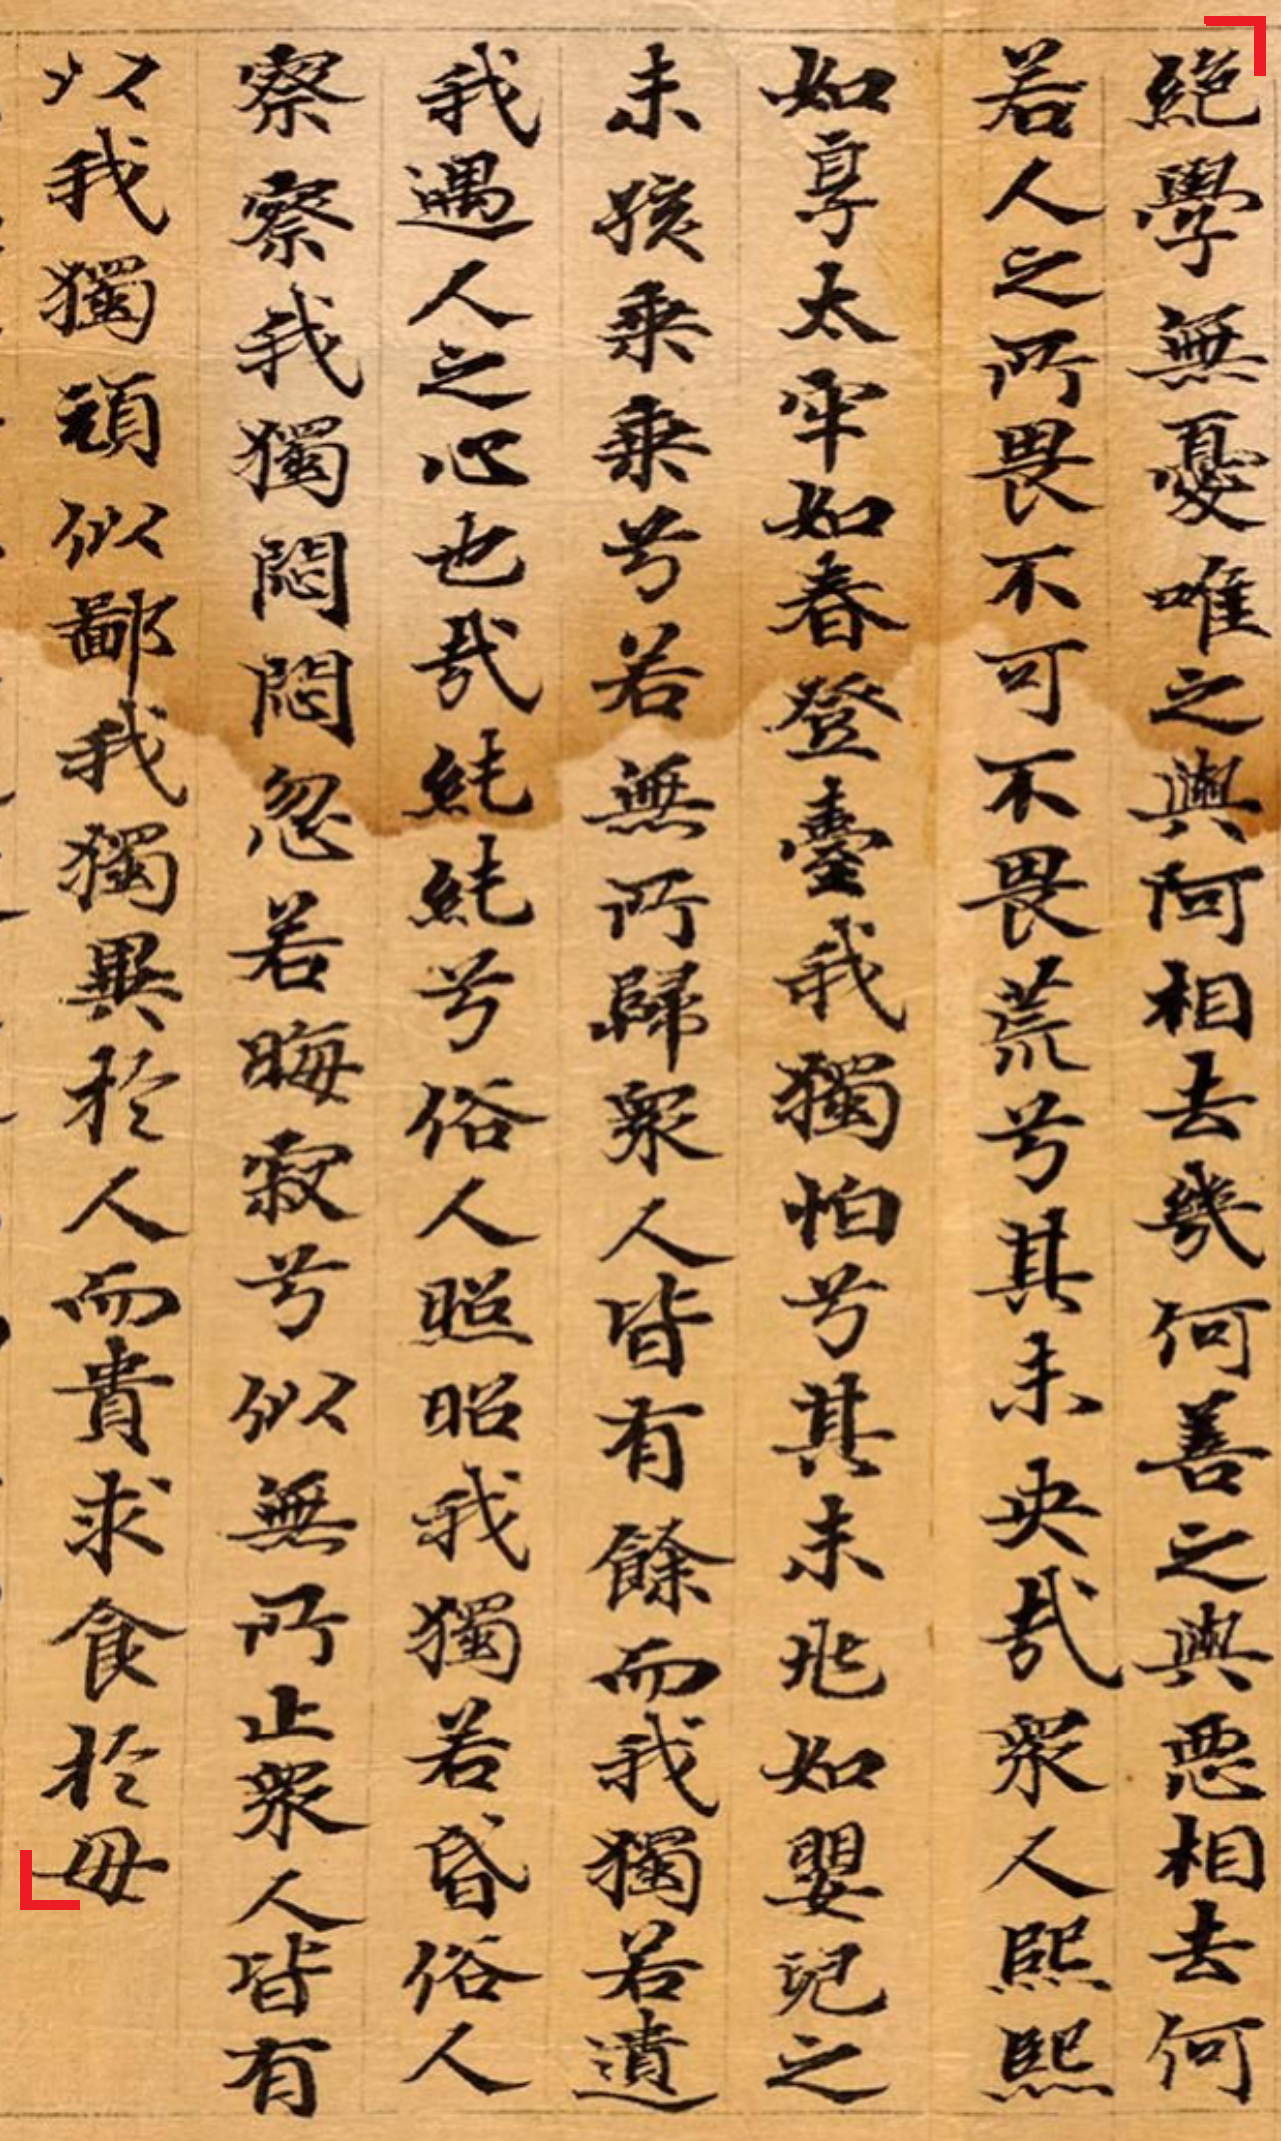 絕學無憂唯之與阿相去幾何善之與惡相去何
若人之所畏不可不畏荒兮其未央哉眾人熙熙
如享太牢如春登臺我獨怕兮其未兆如嬰兒之
未孩乘乘兮若無所歸眾人皆有餘而我獨若遺
我遇人之心也哉純純兮俗人照昭我獨若昏俗人
察察我獨悶悶忽若晦寂兮似無所止眾人皆有
以我獨頑似鄙我獨異於人而貴求食於母